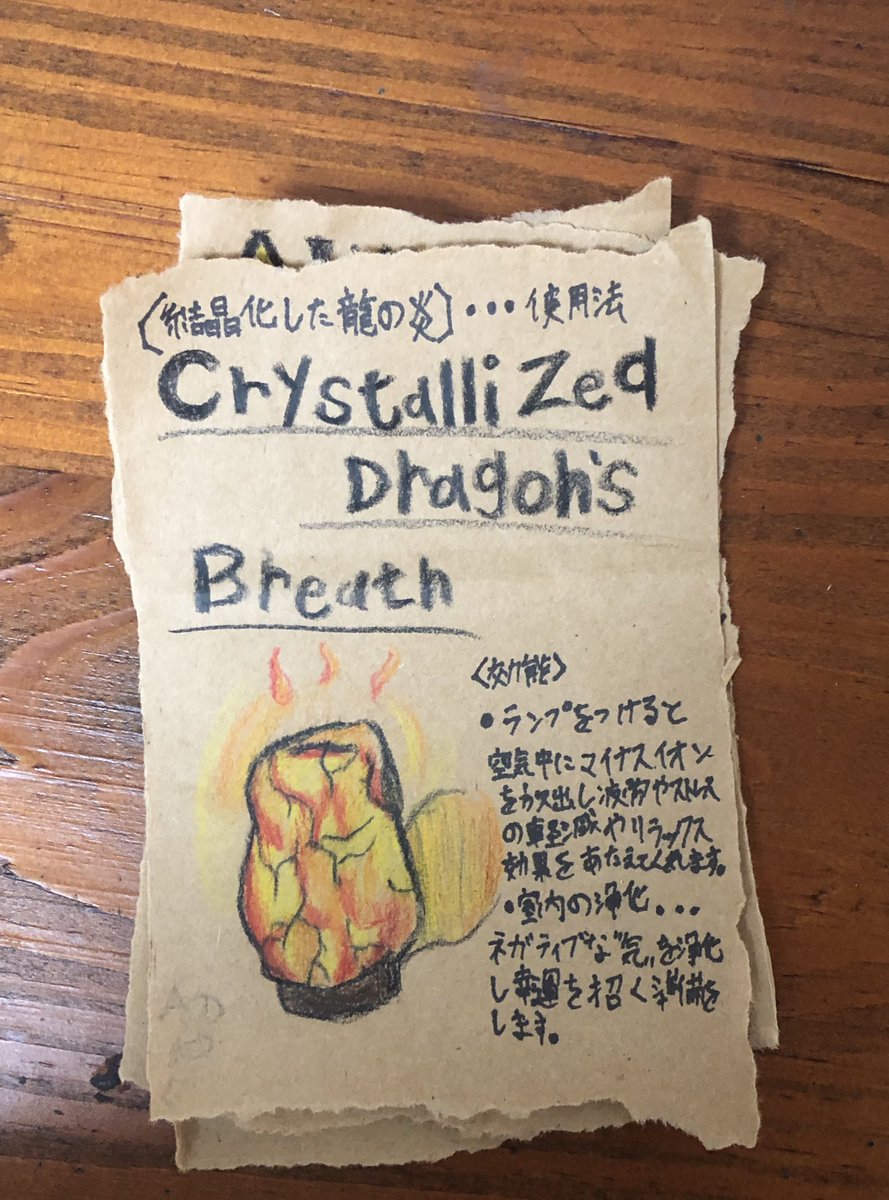 〔結晶化した龍の炎〕・・・使用法
Crystallized
Dragon's
Breath
〈効能〉
・ランプをつけると
空気中にマイナスイオン
を放出し疲労やストレス
の軽減やリラックス
効果をあたえてくれます。
・室内の浄化・・・
ネガティブな"気"を浄化
し幸運を招く準備を
します。